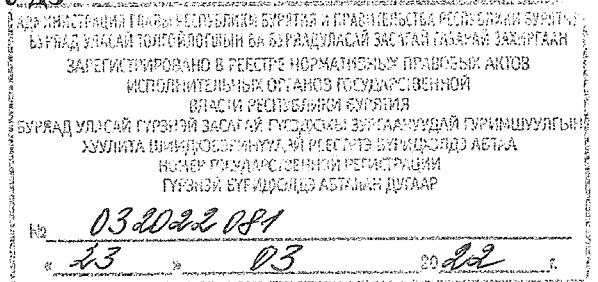 АДМИНИСТРАЦИЯ ГЛАВЫ РЕСПУБЛИКИ БУРЯТИЯ И ПРАВИТЕЛЬСТВА РЕСПУБЛИКИ БУРЯТИЯ
БУРЯАД УЛАСАЙ ТОЛГОЙЛОГШЫН БА БУРЯАД УЛАСАЙ ЗАСАГАЙ ГАЗАРАЙ ЗАХИРГААН
ЗАРЕГИСТРИРОВАНО В РЕЕСТРЕ НОРМАТИВНЫХ ПРАВОВЫХ АКТОВ
ИСПОЛНИТЕЛЬНЫХ ОРГАНОВ ГОСУДАРСТВЕННОЙ
ВЛАСТИ РЕСПУБЛИКИ БУРЯТИЯ
БУРЯАД УЛАСАЙ ГҮРЭНЭЙ ЗАСАГАЙ ГҮЙСЭДХЭХЫ ЗУРГААНУУДАЙ ГУРИМШУУЛГЫН
ХУУЛИТА РЕЕСТРТЭ БҮРИДХЭЛДЭ АБТАА
НОМЕР ГОСУДАРСТВЕННОЙ РЕГИСТРАЦИИ
ГҮРЭНЭЙ БҮРИДХЭЛДЭ АБТАҺАН ДУГААР
№ 032022081
« 23 » 03 2022 г.